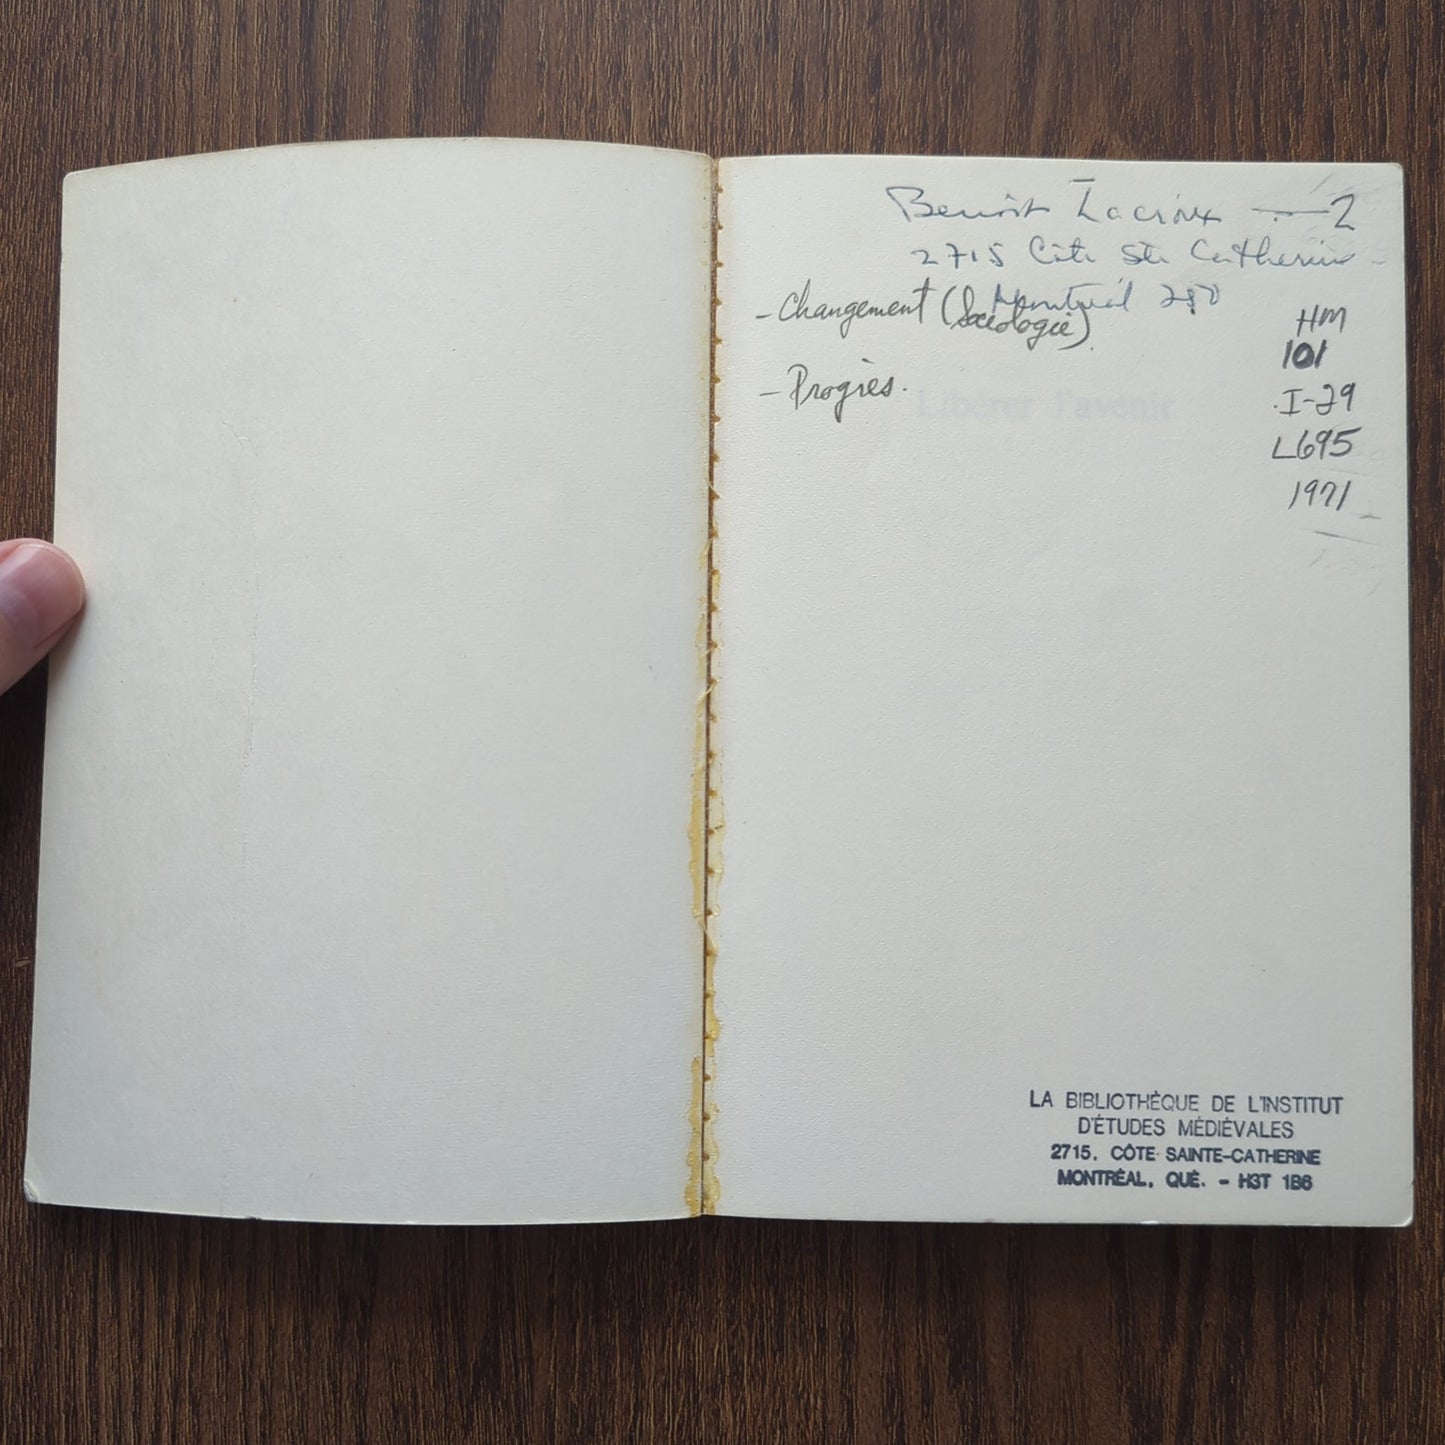 Benoît Lacroix — 2
2715 Côte Ste Catherine
Montréal 250
- Changement (Sociologie).
- Progrès.
HM
101
.I-29
L695
1971
Libérer l'avenir
LA BIBLIOTHÈQUE DE L'INSTITUT
D'ÉTUDES MÉDIÉVALES
2715, CÔTE SAINTE-CATHERINE
MONTRÉAL, QUÉ. - H3T 1B6